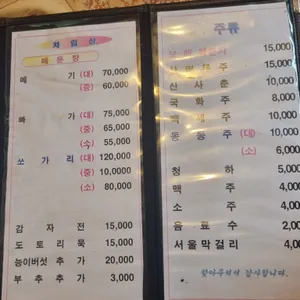 차림상
매운탕
메 기 (대) 70,000
(중) 60,000
빠 가 (대) 75,000
(중) 65,000
(소) 55,000
쏘 가 리 (대) 120,000
(중) 10,0000
(소) 80,000
감 자 전 15,000
도 토 리 묵 15,000
능이버섯 추가 20,000
부 추 추 가 3,000
주류
15,000
15,000
산 사 춘 10,000
국 화 주 8,000
주 8,000
동 동 주 (대) 10,000
(소) 6,000
청 하 5,000
맥 주 4,000
소 주 4,000
음 료 수 2,000
서울막걸리 4,000
찾아주셔서 감사합니다.